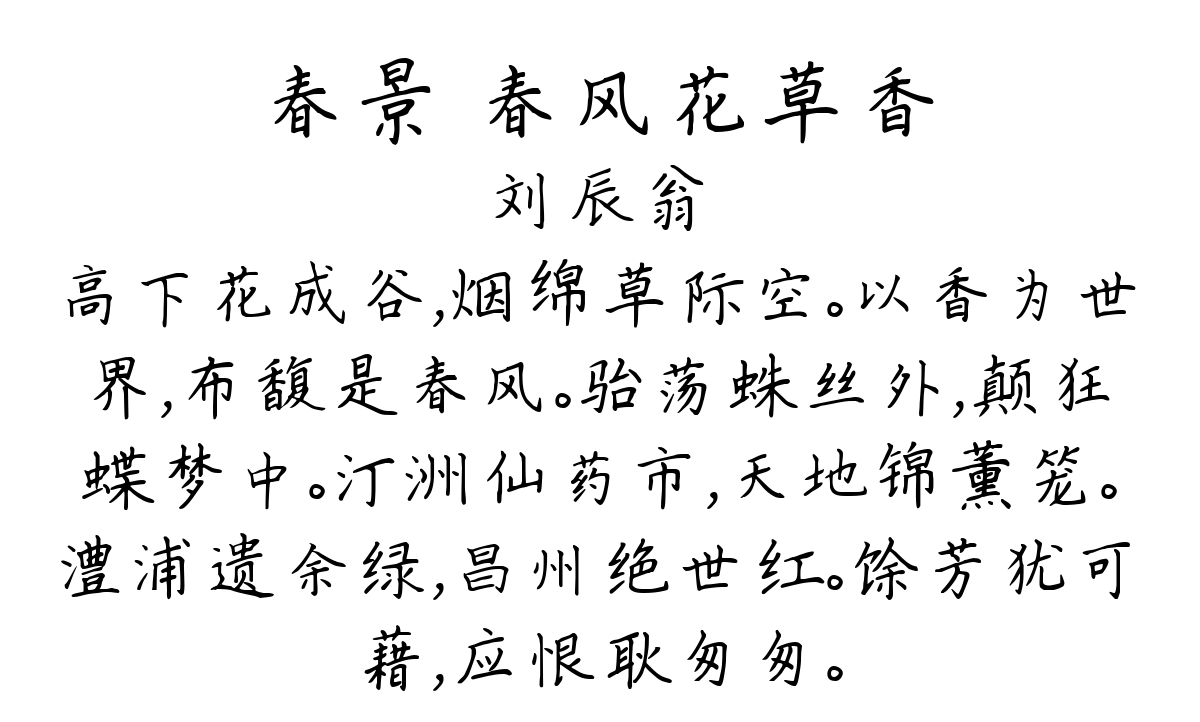 春景 春风花草香
刘辰翁
高下花成谷,烟绵草际空。以香为世
界,布馥是春风。骀荡蛛丝外,颠狂
蝶梦中。汀洲仙药市,天地锦薰笼。
澧浦遗余绿,昌州绝世红。馀芳犹可
藉,应恨耿匆匆。